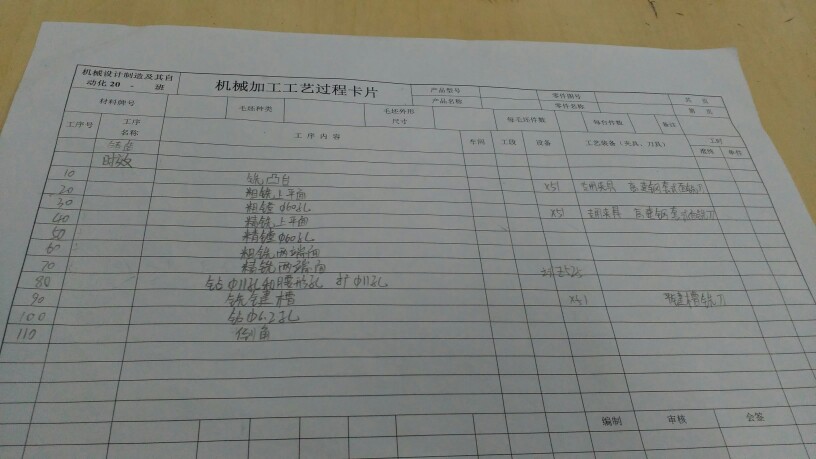 机械设计制造及其自动化 20 - 班
机械加工工艺过程卡片
产品型号 零件图号 共 页
产品名称 零件名称 第 页
材料牌号 毛坯种类 毛坯外形尺寸 每毛坯件数 每台件数 备注
工序号 工序名称 工序内容 车间 工段 设备 工艺装备（夹具、刀具） 工时
准终 单件
时效
10 铣凸台
20 粗铣上平面 X51 专用夹具 高速钢
30 粗镗Φ60孔
40 精铣上平面 X51 专用夹具 高速钢
50 精镗Φ60孔
60 粗铣两端面
70 精铣两端面
80 钻Φ11孔和腰形孔 扩Φ11孔
90 铣键槽 X51 键槽铣刀
100 钻Φ6.2孔
110 倒角
编制 审核 会签